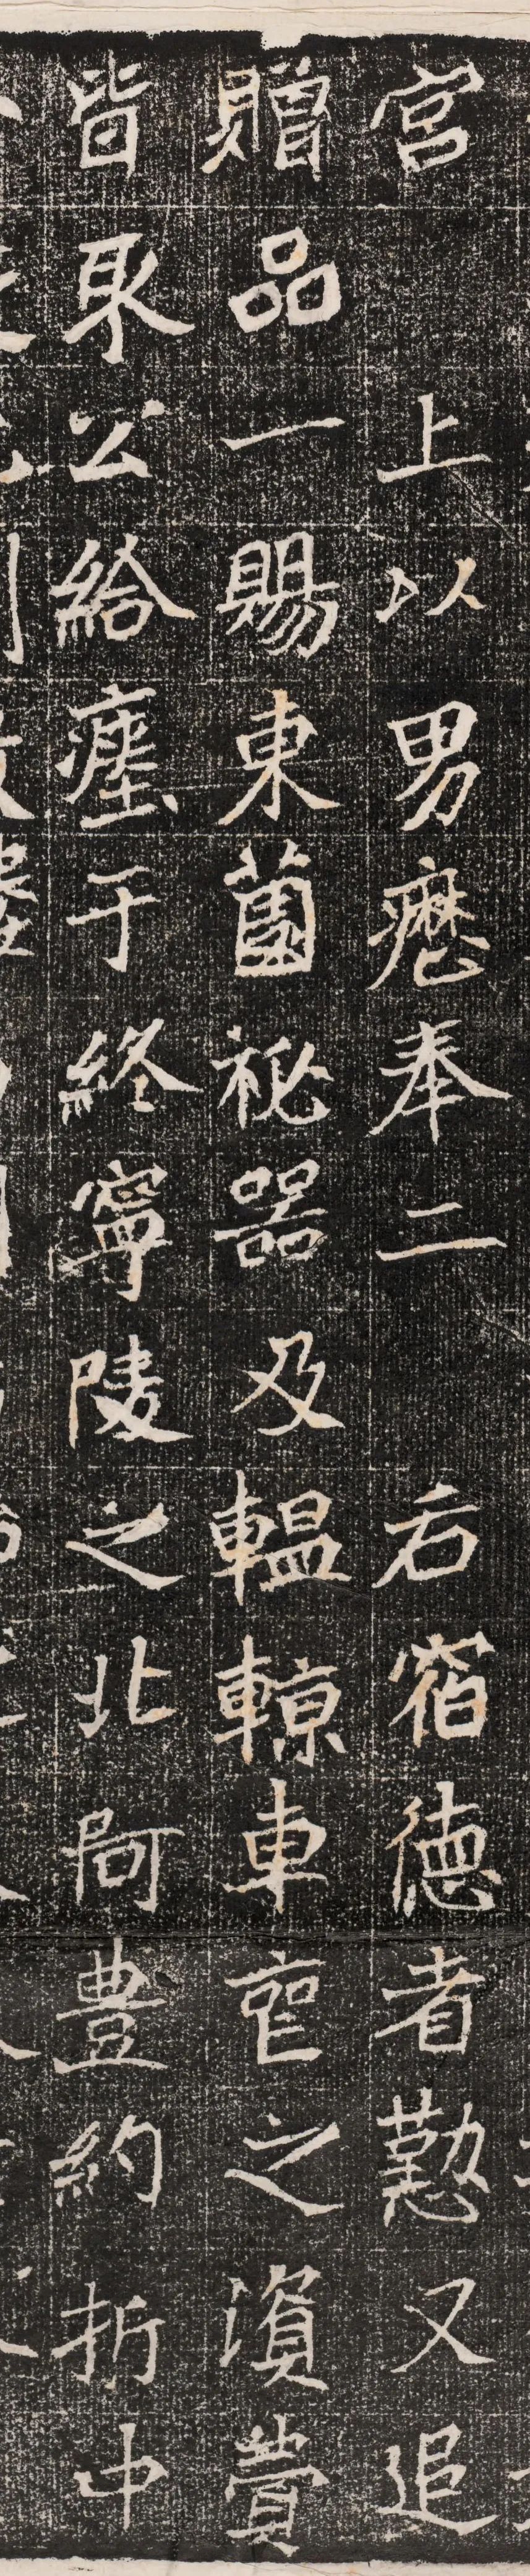 宮上以男歷奉二右宿德者懃又追
贈品一賜東薗祕器及轀輬車喪之湏費
皆取公給瘞于終寧陵之北阿豊約折中